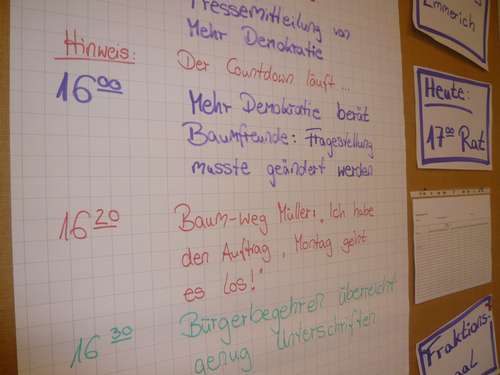 Pressemitteilung von
Mehr Demokratie
Hinweis:
Der Countdown läuft...
16 00
Mehr Demokratie berät
Baumfreunde: Fragestellung
musste geändert werden
16 20
Baum-weg Müller: „Ich habe
den Auftrag, Montag geht
es los!"
16 30
Bürgerbegehren überreicht
genug Unterschriften
Emmerich
Heute:
17 00 Rat
Fraktions-